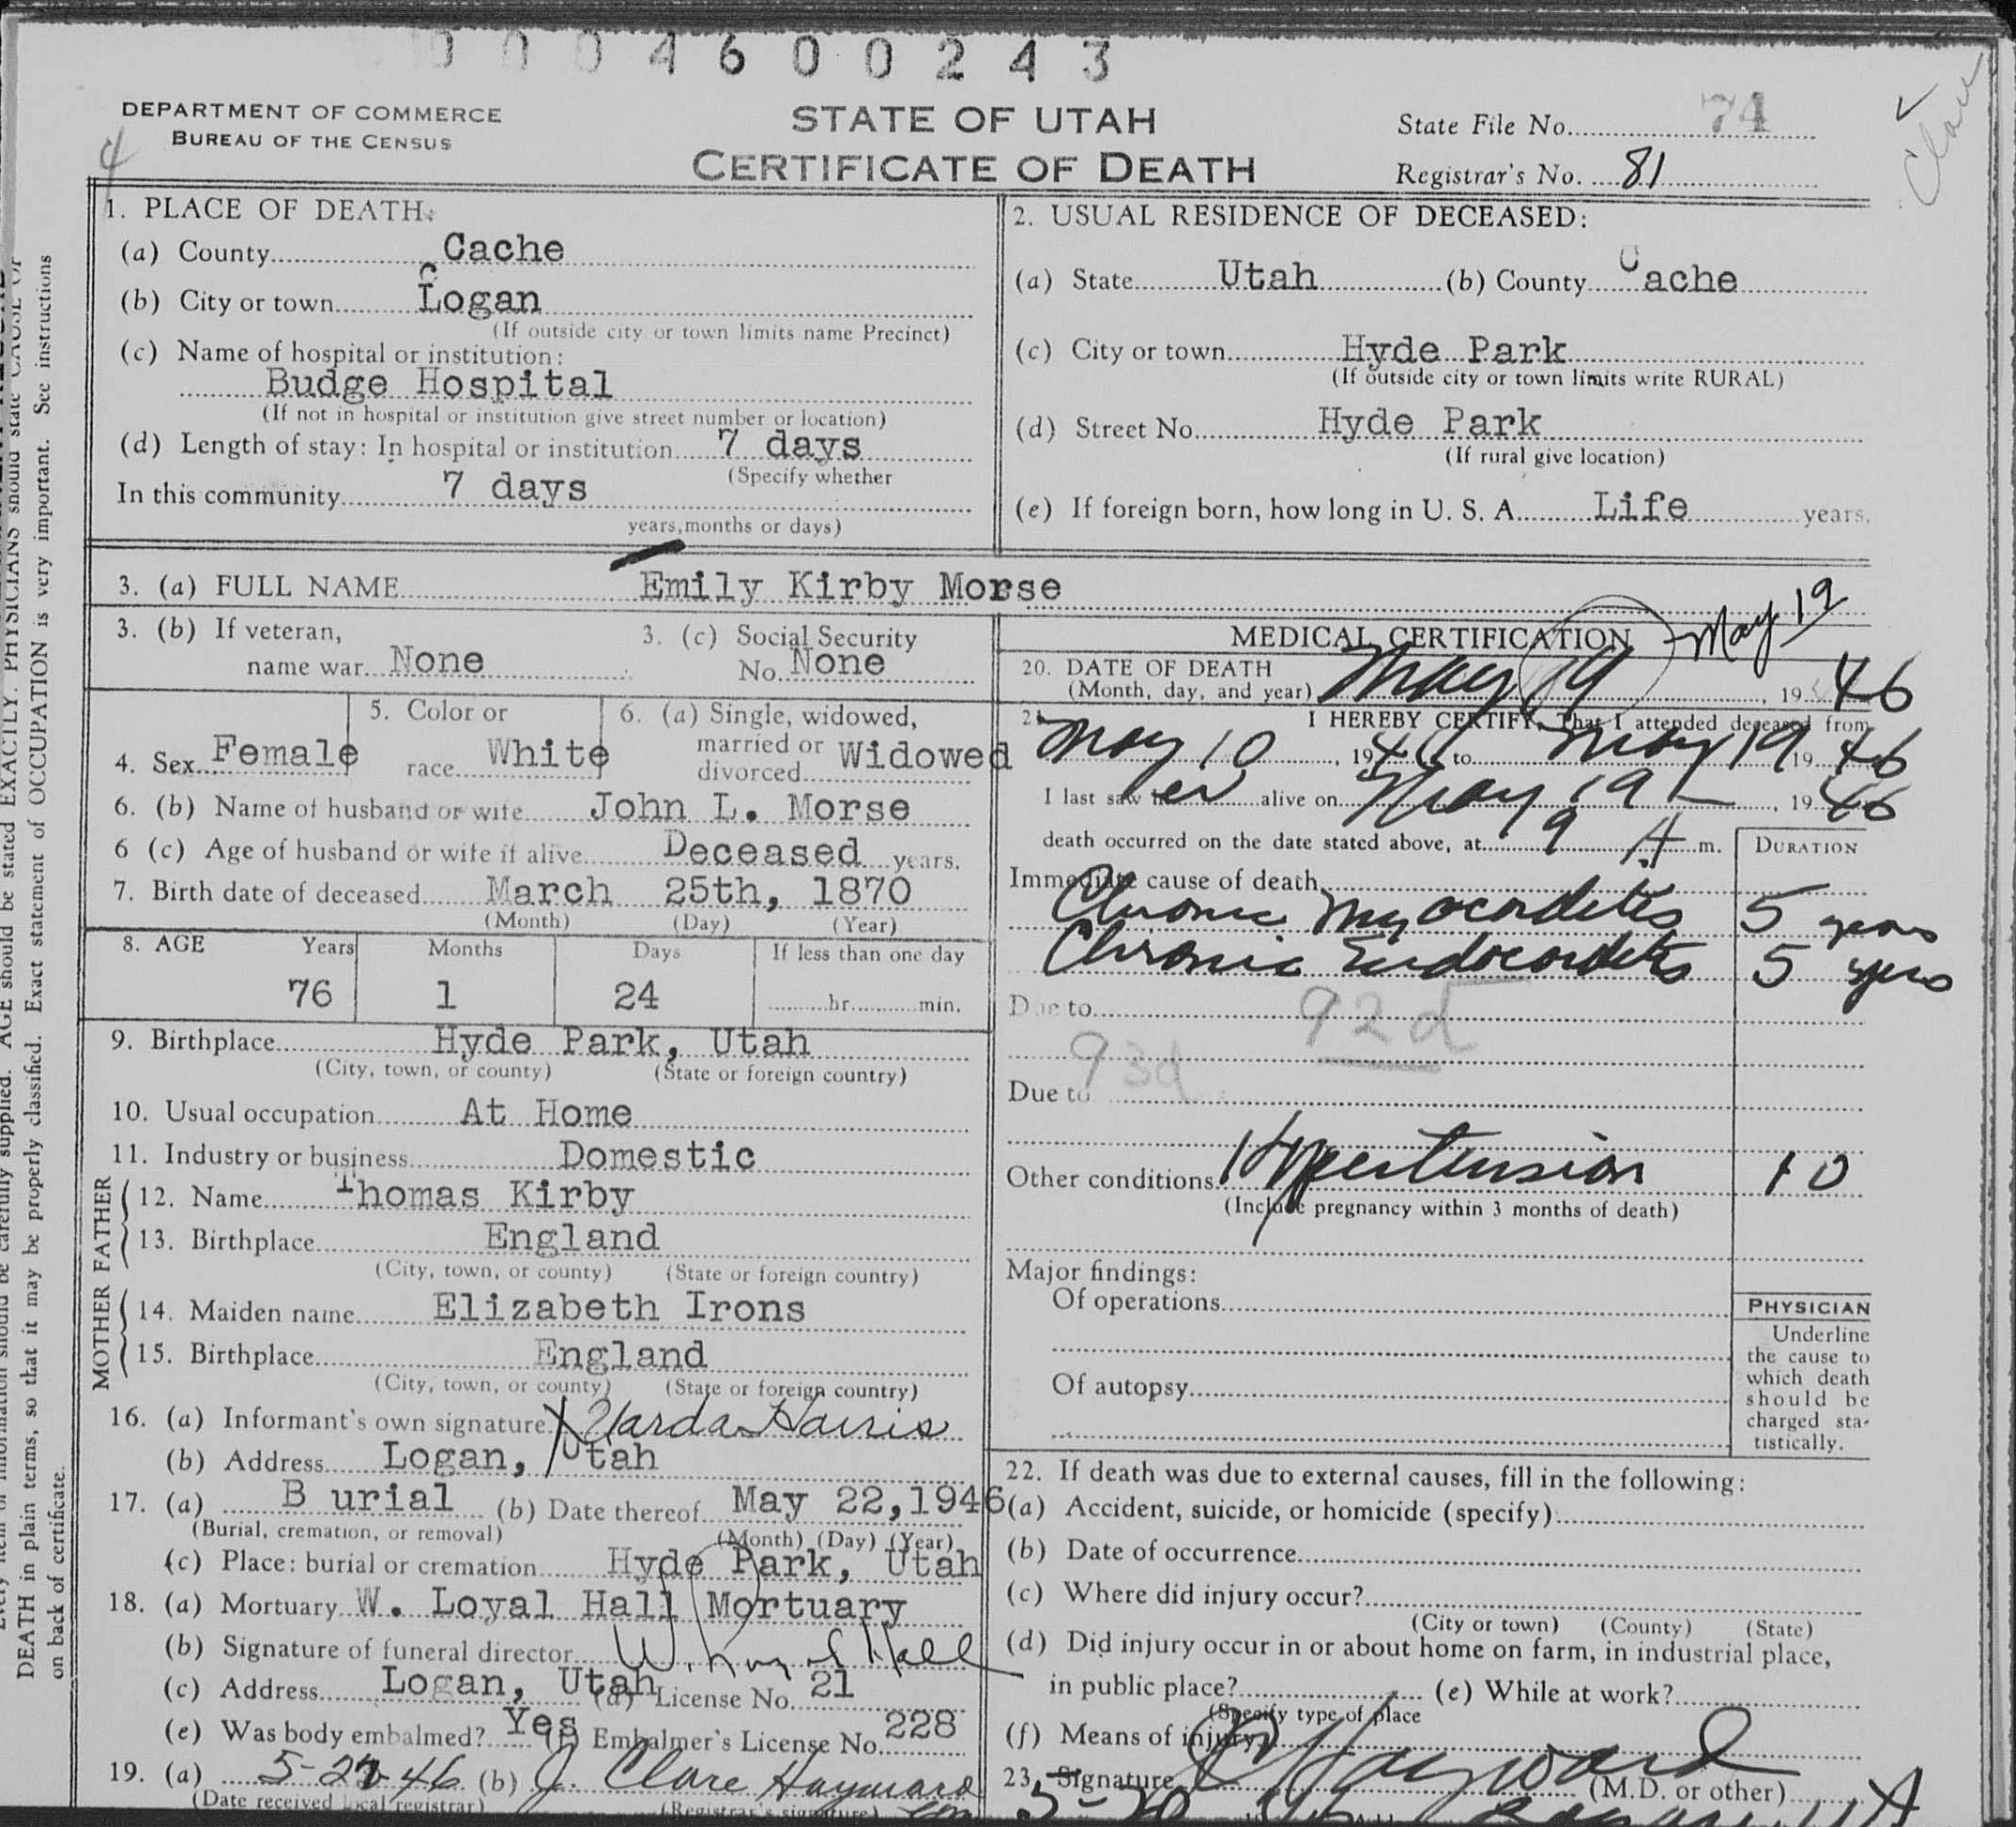 0 0 0 4 6 0 0 2 4 3
DEPARTMENT OF COMMERCE
BUREAU OF THE CENSUS
4
STATE OF UTAH
CERTIFICATE OF DEATH
State File No. 74
Registrar's No. 81
Clare
1. PLACE OF DEATH:
(a) County Cache
(b) City or town Logan
(If outside city or town limits name Precinct)
(c) Name of hospital or institution:
Budge Hospital
(If not in hospital or institution give street number or location)
(d) Length of stay: In hospital or institution 7 days
(Specify whether
In this community 7 days
years, months or days)
2. USUAL RESIDENCE OF DECEASED:
(a) State Utah (b) County Cache
(c) City or town Hyde Park
(If outside city or town limits write RURAL)
(d) Street No. Hyde Park
(If rural give location)
(e) If foreign born, how long in U. S. A. Life years.
3. (a) FULL NAME Emily Kirby Morse
3. (b) If veteran,
name war None
3. (c) Social Security
No. None
4. Sex Female
5. Color or
race White
6. (a) Single, widowed,
married or
divorced Widowed
6. (b) Name of husband or wife John L. Morse
6 (c) Age of husband or wife if alive Deceased years.
7. Birth date of deceased March 25th, 1870
(Month) (Day) (Year)
8. AGE Years Months Days If less than one day
76 1 24 hr. min.
9. Birthplace Hyde Park, Utah
(City, town, or county) (State or foreign country)
10. Usual occupation At Home
11. Industry or business Domestic
FATHER
12. Name Thomas Kirby
13. Birthplace England
(City, town, or county) (State or foreign country)
MOTHER
14. Maiden name Elizabeth Irons
15. Birthplace England
(City, town, or county) (State or foreign country)
16. (a) Informant's own signature X Varda Harris
(b) Address Logan, Utah
17. (a) B urial (b) Date thereof May 22, 1946
(Burial, cremation, or removal) (Month) (Day) (Year)
(c) Place: burial or cremation Hyde Park, Utah
18. (a) Mortuary W. Loyal Hall Mortuary
(b) Signature of funeral director W. Loyal Hall
(c) Address Logan, Utah (d) License No. 21
(e) Was body embalmed? Yes (f) Embalmer's License No. 228
19. (a) 5-22-46 (b) J. Clare Hayward
(Date received local registrar) (Registrar's signature)
May 19
MEDICAL CERTIFICATION
20. DATE OF DEATH
(Month, day, and year) May 19, 1946
21. I HEREBY CERTIFY, That I attended deceased from
May 10, 1946 to May 19 1946
I last saw her alive on May 19, 1946
death occurred on the date stated above, at 9 A. m.
DURATION
Immediate cause of death
Chronic Myocarditis 5 years
Chronic Endocarditis 5 years
Due to 92d
93d
Due to
Other conditions Hypertension 10
(Include pregnancy within 3 months of death)
Major findings:
Of operations
Of autopsy
PHYSICIAN
Underline
the cause to
which death
should be
charged sta-
tistically.
22. If death was due to external causes, fill in the following:
(a) Accident, suicide, or homicide (specify)
(b) Date of occurrence
(c) Where did injury occur?
(City or town) (County) (State)
(d) Did injury occur in or about home on farm, in industrial place,
in public place? (e) While at work?
(Specify type of place
(f) Means of injury
23. Signature Hayward (M.D. or other)
5-20
AGE should be stated EXACTLY. PHYSICIANS should state CAUSE OF
DEATH in plain terms, so that it may be properly classified. Exact statement of OCCUPATION is very important. See instructions
on back of certificate.